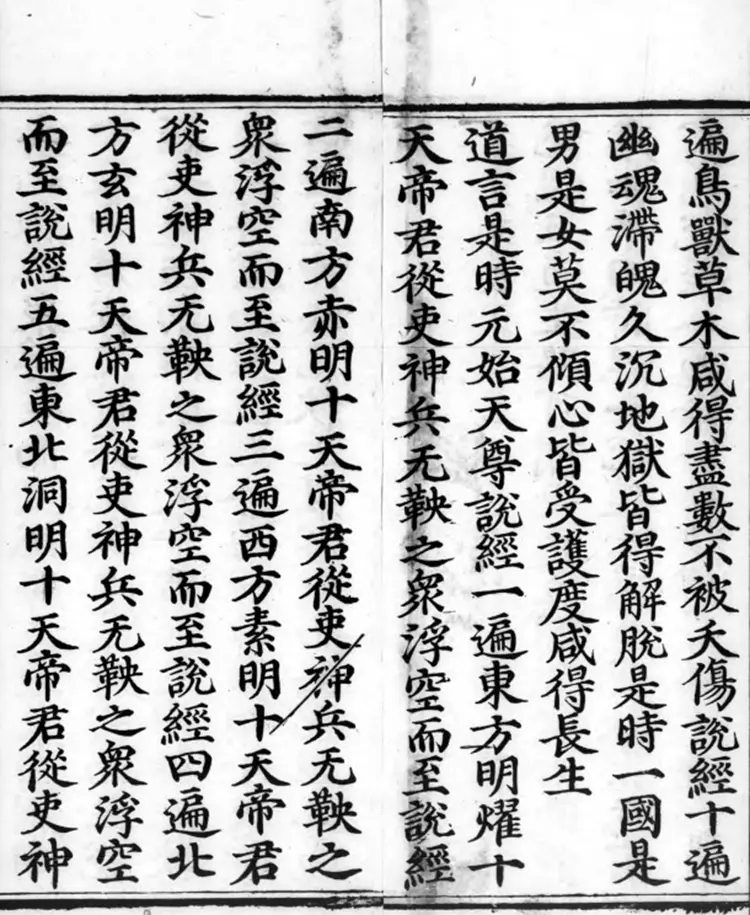 遍鳥獸草木咸得盡數不被夭傷說經十遍
幽魂滯魄久沉地獄皆得解脫是時一國是
男是女莫不傾心皆受護度咸得長生
道言是時元始天尊說經一遍東方明耀十
天帝君從吏神兵无鞅之衆浮空而至說經
二遍南方赤明十天帝君從吏神兵无鞅之
衆浮空而至說經三遍西方素明十天帝君
從吏神兵无鞅之衆浮空而至說經四遍北
方玄明十天帝君從吏神兵无鞅之衆浮空
而至說經五遍東北洞明十天帝君從吏神